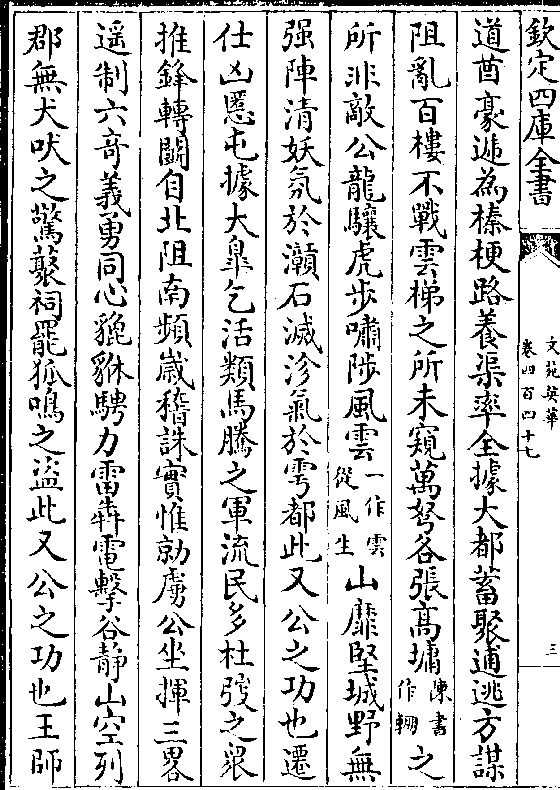 欽定四庫全書
文苑英華
卷四百四十七
三
道酋豪遞為榛梗路養渠率全據大都蓄聚逋逃方謀
阻亂百樓不戰雲梯之所未窺萬弩各張髙墉陳書作輣之
所非敵公龍驤虎步嘯陟風雲一作雲從風生山靡堅城野無
强陣清妖氛於灨石滅沴氣於雩都此又公之功也遷
仕凶慝屯據大臯乞活類馬騰之軍流民多杜弢之衆
推鋒轉鬭自北阻南頻嵗稽誅實惟勍虜公坐揮三畧
遥制六奇義勇同心貔貅騁力雷犇電擊谷静山空列
郡無犬吠之驚藂祠罷狐鳴之盜此又公之功也王師